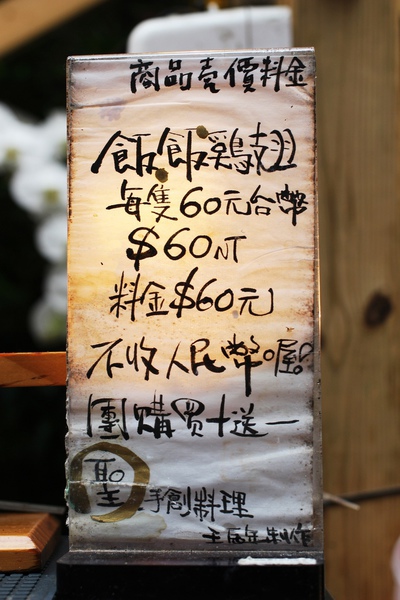 商品壳價料金
飯飯鷄翅
每隻60元台幣
$60NT
料金$60元
不收人民幣喔!
團購買十送一
聖
手創料理
製作